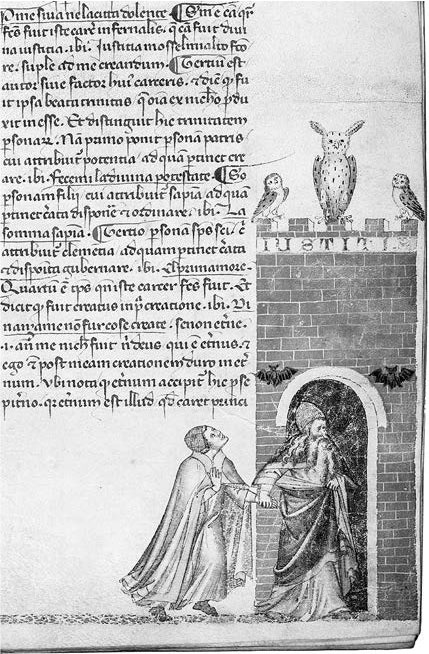 P me si va ne la citta dolente. ¶ Sm e ca qr
fcs fuit iste carcer infernalis. q ca fuit divi
na iustitia. ibi. Iustitia mosse l mi alto fcto
re. suple ad me creandum. ¶ Tertiū est
autor sive factor hui carceris. & dic̄ q fu
it ipsa beata trinitas. q oīa ex nicħo pdu
xit in esse. Et distinguit hic trinitatem
personaꝝ. Nā primo ponit psonā patris
cui attribuit potentia. ad quā ptinet cre
are. ibi. Fecemi la divina potestate. ¶ So
psonam filii cui attribuit sapīa. ad quā
ptinet cāta disponē & ordinare. ibi. La
somma sapīa. ¶ Tertio psona sps sci. c̄
attribuit clemētia ad quam ptinet cāta
& disposita gubernare. ibi. El primo amore.
Quartū ē tps qn iste carcer fcs fuit. Et
dicit q fuit creatus in p creatione. ibi. Di
nançi a me non fur cose create. se non etne.
.i. an me nichil fuit n deus qui ē etnus. &
ego & post meam creationem duro in et
num. Ubi nota q etnum accipit hic p se
pitno. qr etnum est illud qd caret princi
IUSTITIA